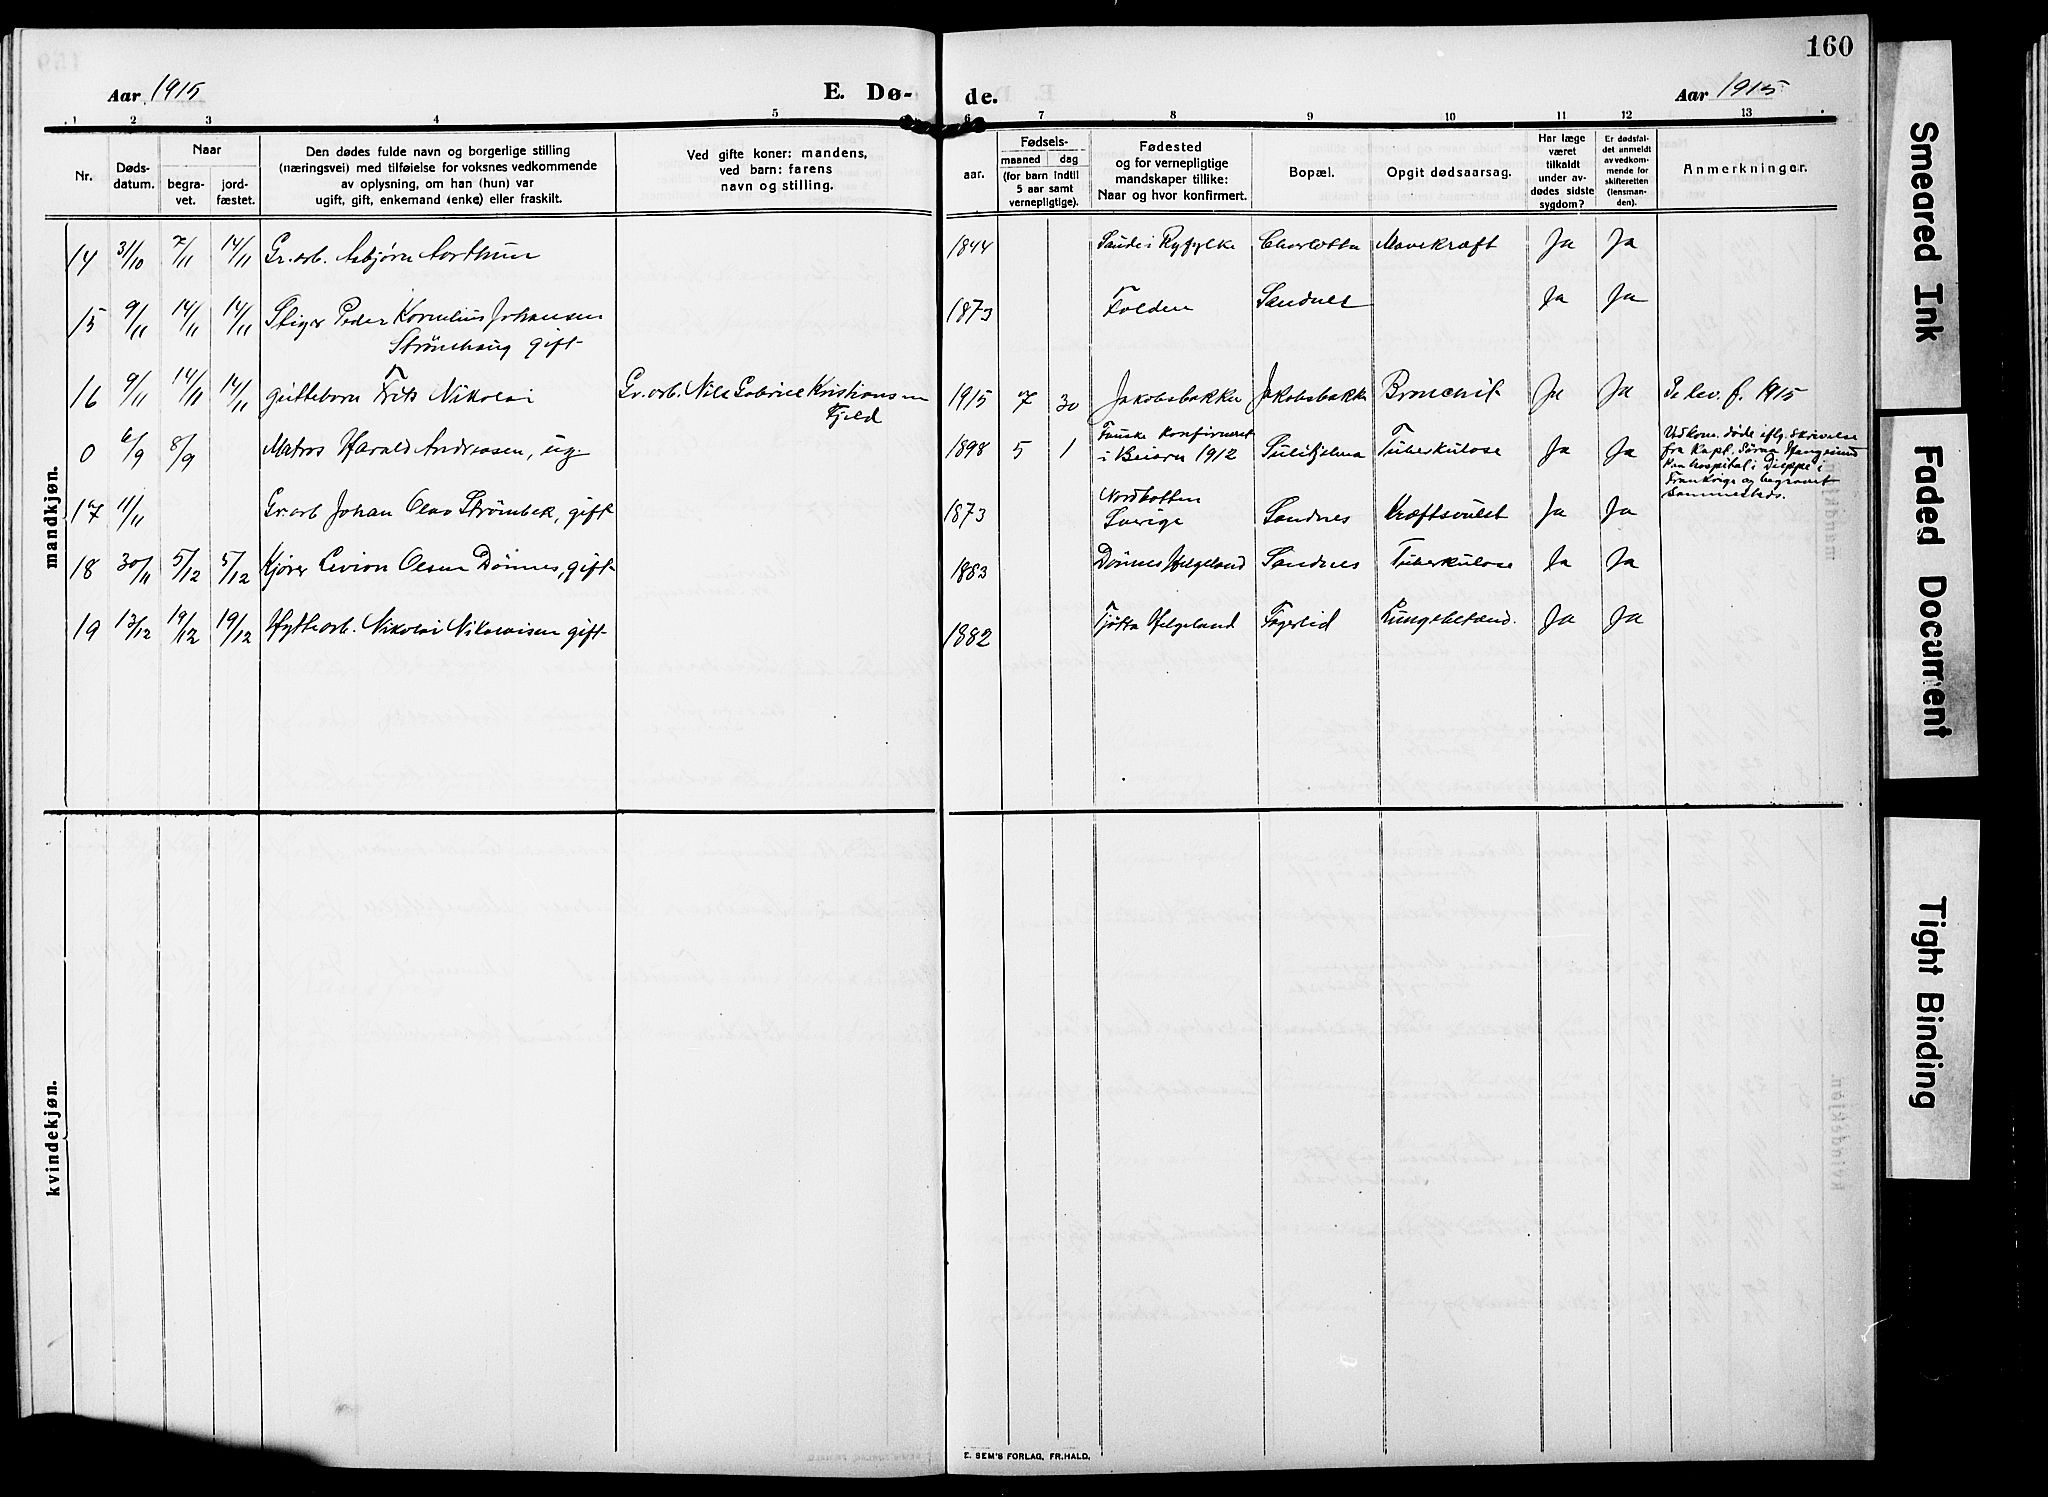 160
Aar 1915
E. Dø-
de.
Aar 1915
1 2 3 4 5 6 7 8 9 10 11 12 13
Nr.
Døds-
datum.
Naar
begra-
vet.
jord-
fæstet.
Den dødes fulde navn og borgerlige stilling
(næringsvei) med tilføielse for voksnes vedkommende
av oplysning, om han (hun) var
ugift, gift, enkemand (enke) eller fraskilt.
Ved gifte koner: mandens,
ved barn: farens
navn og stilling.
Fødsels-
aar.
maaned dag
(for barn indtil
5 aar samt
vernepligtige).
Fødested
og for vernepligtige
mandskaper tillike:
Naar og hvor konfirmert.
Bopæl.
Opgit dødsaarsag.
Har læge
været
tilkaldt
under av-
dødes sidste
sygdom?
Er dødsfal-
det anmeldt
av vedkom-
mende for
skifteretten
(lensman-
den).
Anmerkninger.
mandkjøn.
14 31/10 7/11 14/11 Gr. arb. Asbjørn Aarthun 1844 Sande i Ryfylke Charlotta Mavekræft Ja Ja
15 9/11 14/11 14/11 Stiger Peder Kornelius Johansen 1873 Folden Sandnes Ja Ja
Strömhaug gift
16 9/11 14/11 14/11 guttebarn Frits Nikolai Gr. arb. Nils Gabriel Kristiansen 1915 7 30 Jakobsbakken Jakobsbakken Bronchit Ja Ja Se lev. f. 1915
Fjeld
0 6/9 8/9 Matros Harald Andreasen, ug. 1898 5 1 Fauske konfirmeret Sulitjelma Tuberkulose Ja Ja Vedkom. døde iflg. skrivelse
i Beiarn 1912 fra Kapt.
hospital i Dieppe i
Frankrige og begravet
sammesteds.
17 11/11 Gr. arb Johan Olav Strømbek, gift 1873 Nordbotten Sandnes Kræftsvulst Ja Ja
Sverige
18 30/11 5/12 5/12 Kjører Levion Olsen Dönnes, gift 1883 Dönnes Helgeland Sandnes Tuberkulose Ja Ja
19 13/12 19/12 19/12 Hyttearb. Nikolai Nikolaisen gift 1882 Tjøtta Helgeland Fagerlid Lungebetænd. Ja Ja
kvindekjøn.
E. SEM'S FORLAG, FR.HALD.
Smeared Ink
Faded Document
Tight Binding